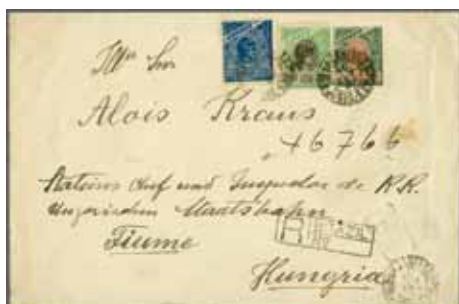 Illm Snr
Alois Kraus
46766
Stations Chef und Inspector de K.K.
Ungarischen Staatsbahn
Fiume
R
Hungria